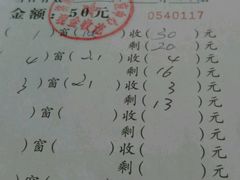 0540117
金额:50元
(1)窗( )收(30)元
剩(20)元
(4)窗(21)收(4)元
剩(16)元
(3)窗(21)收(3)元
剩(13)元
( )窗( )收( )元
剩( )元
( )窗( )收( )元
剩( )元